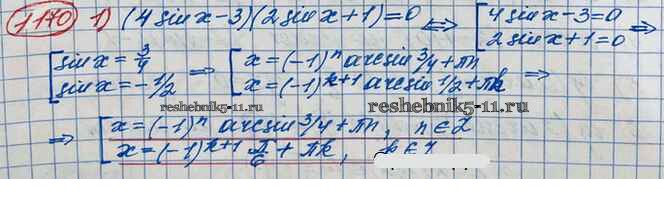 1170 1) (4 sin x - 3)(2 sin x + 1) = 0 <=> [ 4 sin x - 3 = 0 =>
2 sin x + 1 = 0
[ sin x = 3/4 => [ x = (-1)^n arcsin 3/4 + πn
sin x = -1/2 x = (-1)^{k+1} arcsin 1/2 + πk =>
reshebnik5-11.ru reshebnik5-11.ru
=> [ x = (-1)^n arcsin 3/4 + πn, n ∈ Z
x = (-1)^{k+1} π/6 + πk,